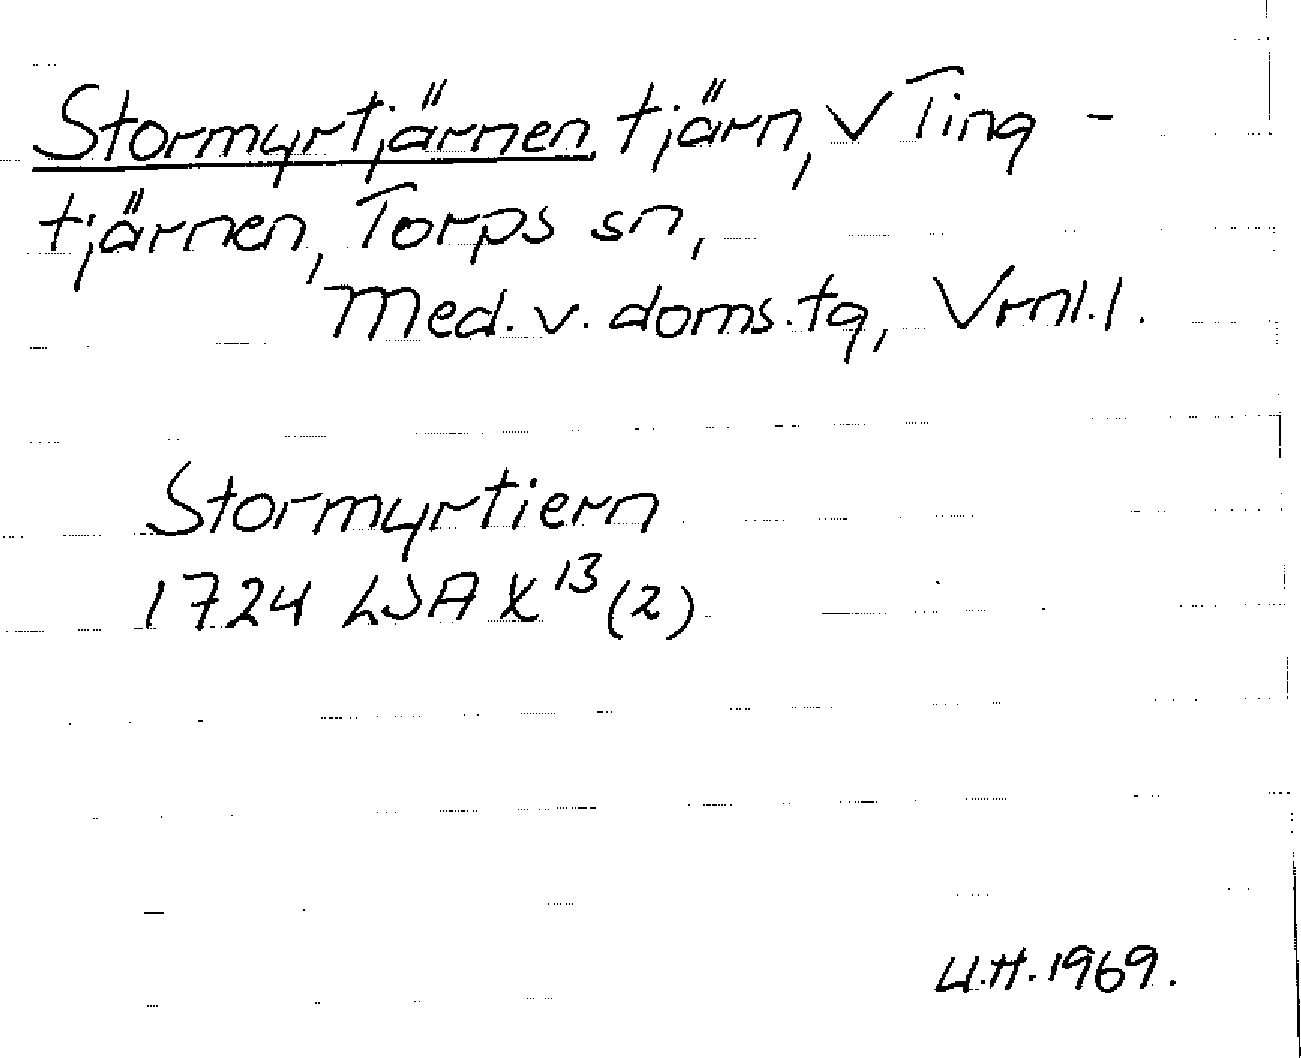 Stormyrtjärnen, tjärn, V Ting-
tjärnen, Torps sn,
Med. v. doms. tg, Vrnl. l.
Stormyrtiern
1724 LSA X¹³ (2)
U.H. 1969.